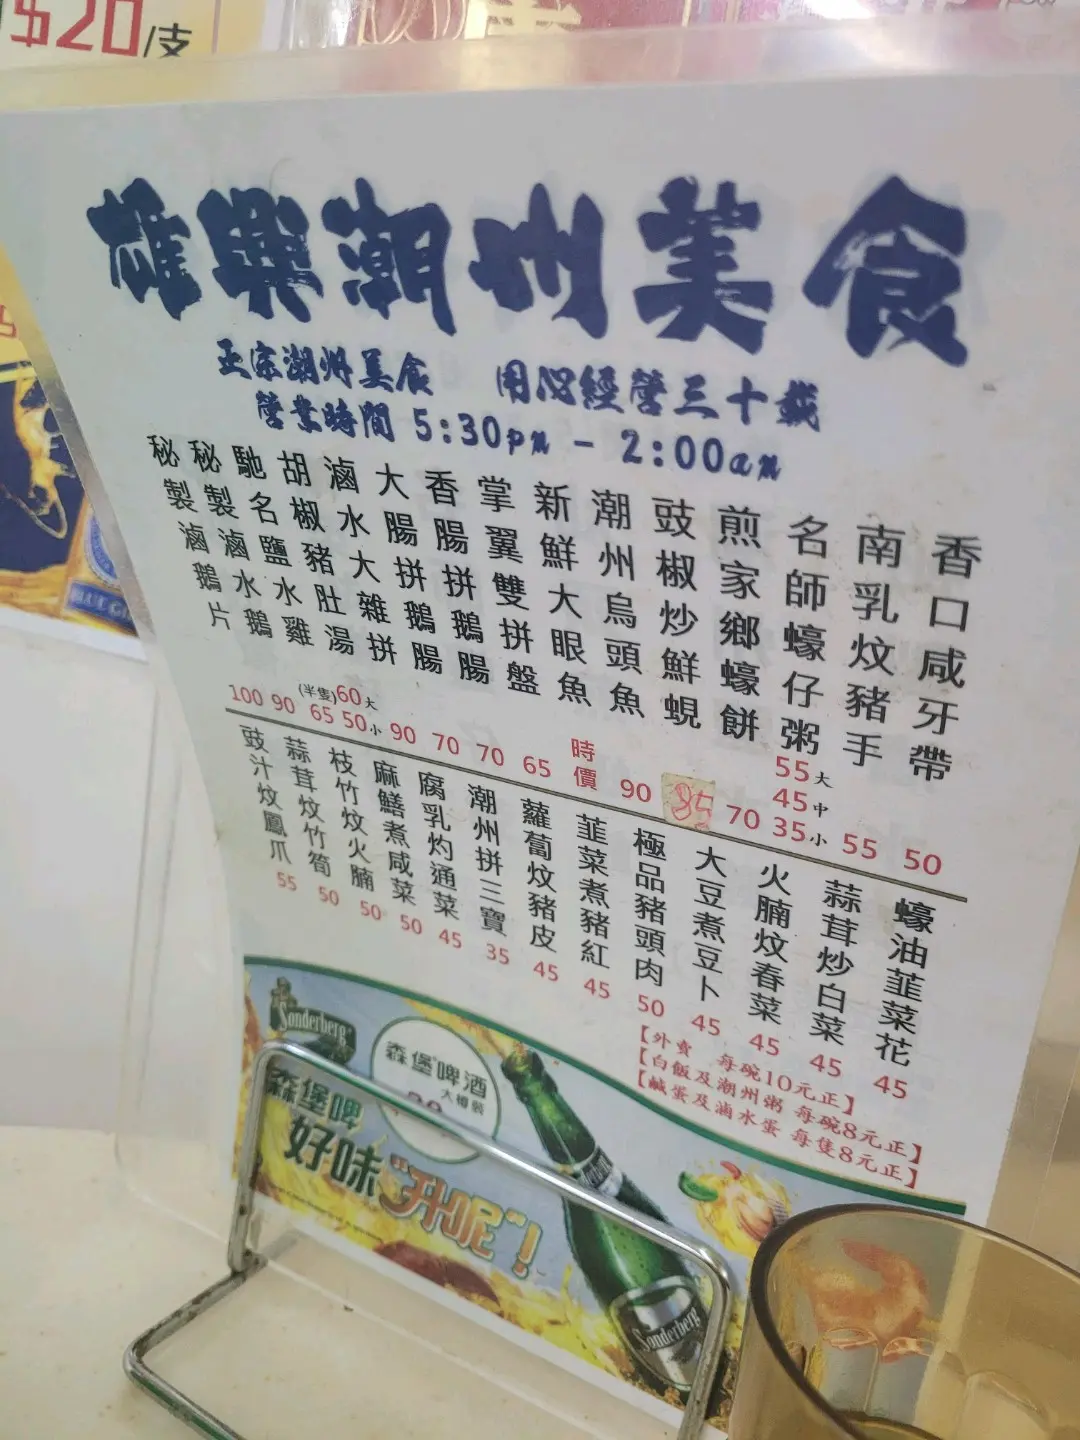 $20/支
雄興潮州美食
正宗潮州美食 用心經營三十載
營業時間 5:30pm - 2:00am
香口咸牙帶 50
南乳炆豬手 55
名師蠔仔粥 55大 45中 35小
煎家鄉蠔餅 70
豉椒炒鮮蜆 85
潮州烏頭魚 90
新鮮大眼魚 時價
掌翼雙拼盤 65
香腸拼鵝腸 70
大腸拼鵝腸 70
滷水大雜拼 90
胡椒豬肚湯 60大 50小
馳名鹽水雞 (半隻)65
秘製滷水鵝 90
秘製滷鵝片 100
蠔油韮菜花 45
蒜茸炒白菜 45
火腩炆春菜 45
大豆煮豆卜 45
極品豬頭肉 50
韮菜煮豬紅 45
蘿蔔炆豬皮 45
潮州拼三寶 35
腐乳灼通菜 45
麻鱔煮咸菜 50
枝竹炆火腩 50
蒜茸炆竹筍 50
豉汁炆鳳爪 55
【外賣 每碗10元正】
【白飯及潮州粥 每碗8元正】
【鹹蛋及滷水蛋 每隻8元正】
Sonderberg
森堡啤酒
大樽裝
森堡啤
好味"升呢"!
Sonderberg